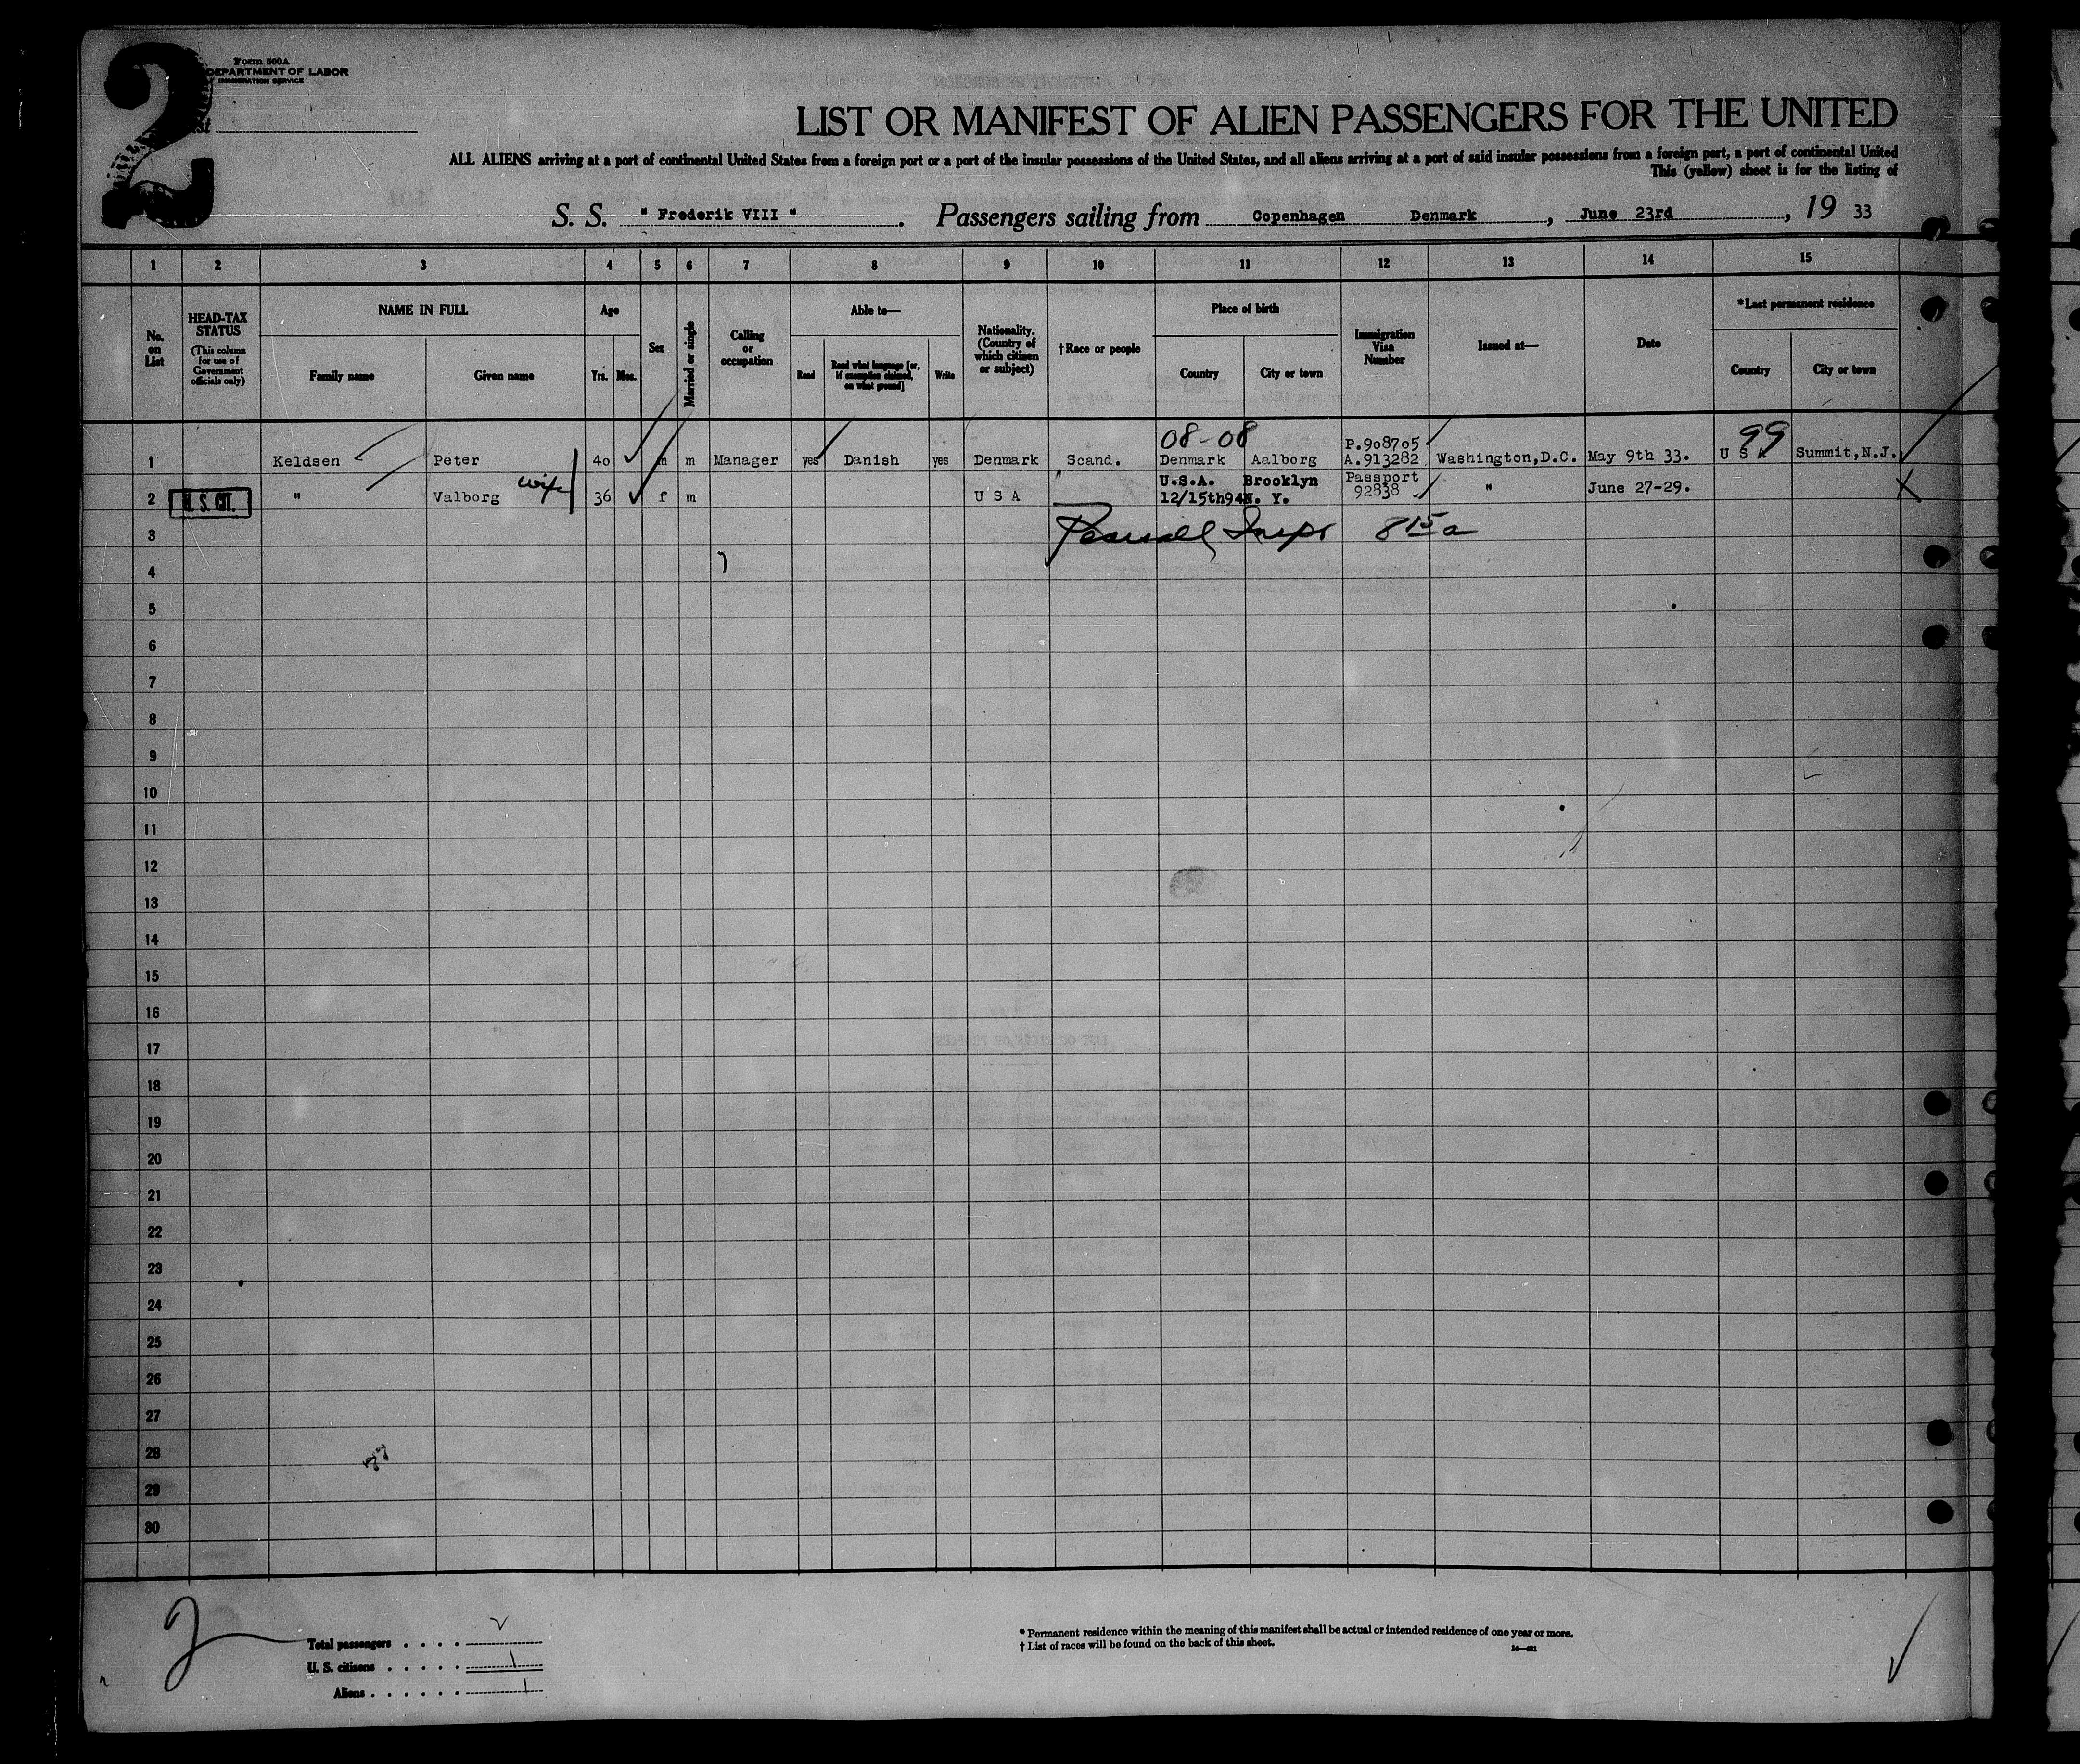 2
Form 500A
DEPARTMENT OF LABOR
IMMIGRATION SERVICE
LIST OR MANIFEST OF ALIEN PASSENGERS FOR THE UNITED
ALL ALIENS arriving at a port of continental United States from a foreign port or a port of the insular possessions of the United States, and all aliens arriving at a port of said insular possessions from a foreign port, a port of continental United
This (yellow) sheet is for the listing of
S. S. " Frederik VIII " . Passengers sailing from Copenhagen Denmark , June 23rd , 19 33
1 2 3 4 5 6 7 8 9 10 11 12 13 14 15
No. on List
HEAD-TAX STATUS
(This column for use of Government officials only)
NAME IN FULL
Family name
Given name
Age
Yrs. Mos.
Sex
Married or single
Calling or occupation
Able to—
Read
Read what language [or, if exemption claimed, on what ground]
Write
Nationality. (Country of which citizen or subject)
†Race or people
Place of birth
Country
City or town
Immigration Visa Number
Issued at—
Date
*Last permanent residence
Country
City or town
08-08
P.908705
99
1 Keldsen Peter 40 m m Manager yes Danish yes Denmark Scand. Denmark Aalborg A.913282 Washington,D.C. May 9th 33. U S A Summit,N.J.
wife
U.S.A. Brooklyn Passport
2 U. S. CIT. " Valborg 36 f m U S A 12/15th94 N. Y. 92838 " June 27-29.
3 Inspr 8 15 a
4
5
6
7
8
9
10
11
12
13
14
15
16
17
18
19
20
21
22
23
24
25
26
27
28
29
30
2
Total passengers . . . .
U. S. citizens . . . . . 1
Aliens . . . . . . 1
* Permanent residence within the meaning of this manifest shall be actual or intended residence of one year or more.
† List of races will be found on the back of this sheet.